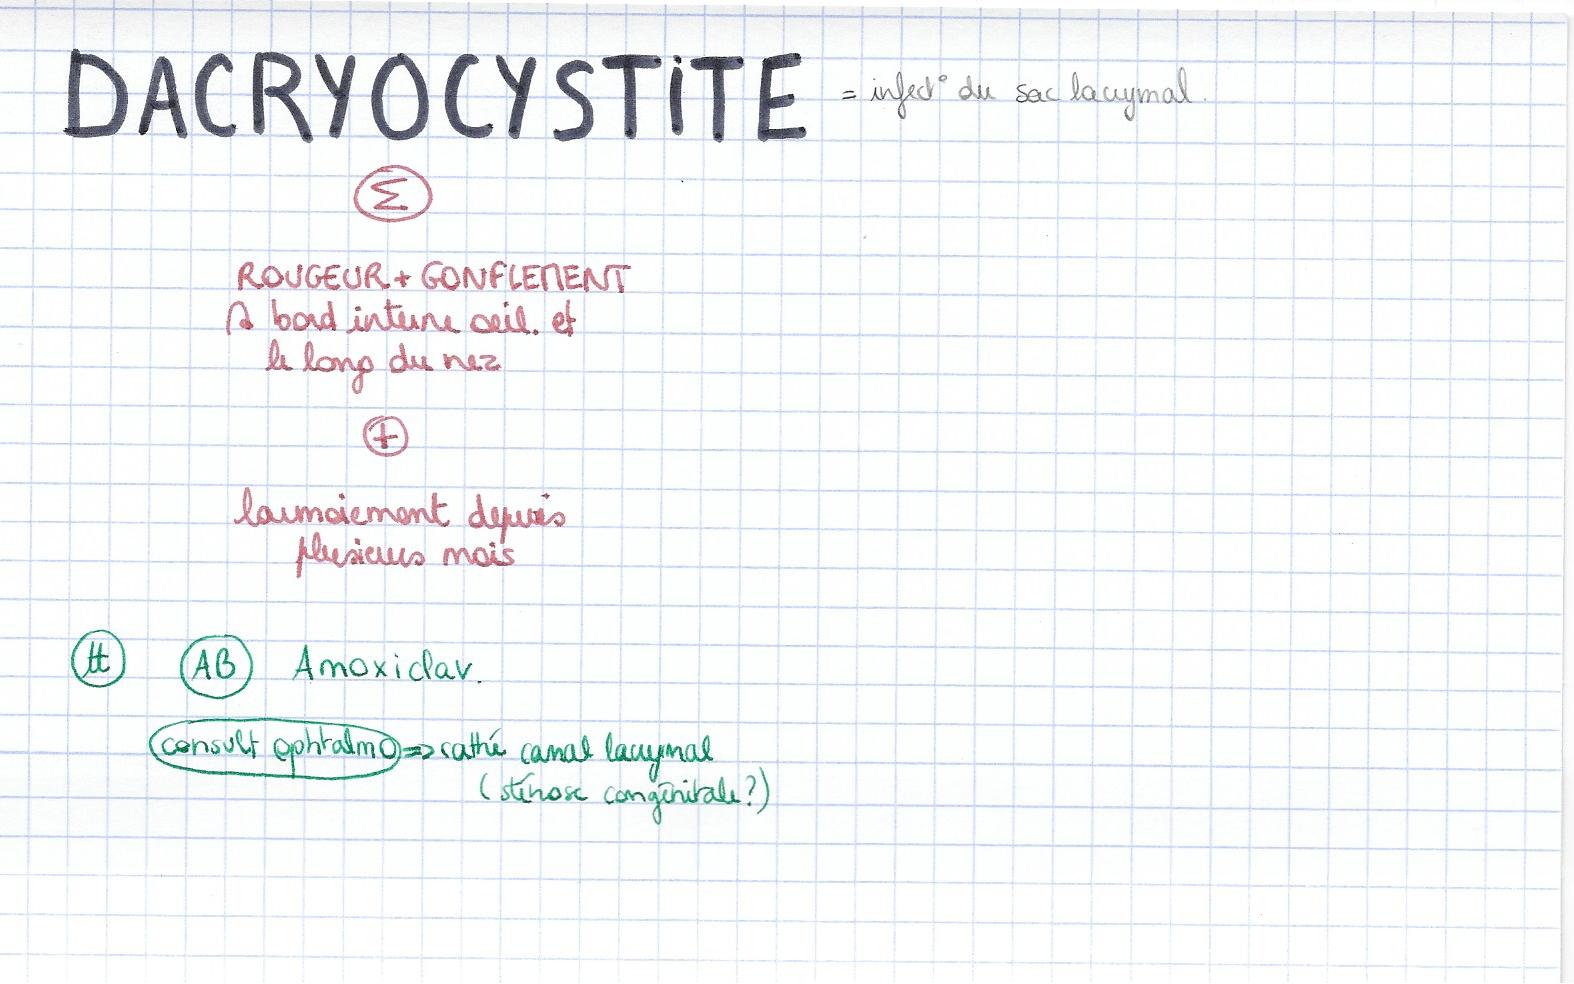 DACRYOCYSTiTE = infect° du sac lacrymal.
Σ
ROUGEUR + GONFLEMENT
bord interne oeil. et
le long du nez
+
larmoiement depuis
plusieurs mois
tt AB Amoxiclav.
consult ophtalmo => cathé canal lacrymal
(sténose congénitale?)